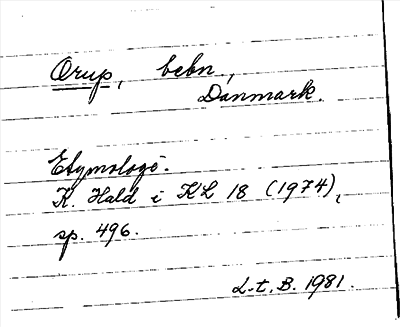 Orup, bebn,
Danmark.
Etymologi.
K. Hald i KL 18 (1974),
sp. 496.
L-t. B. 1981.